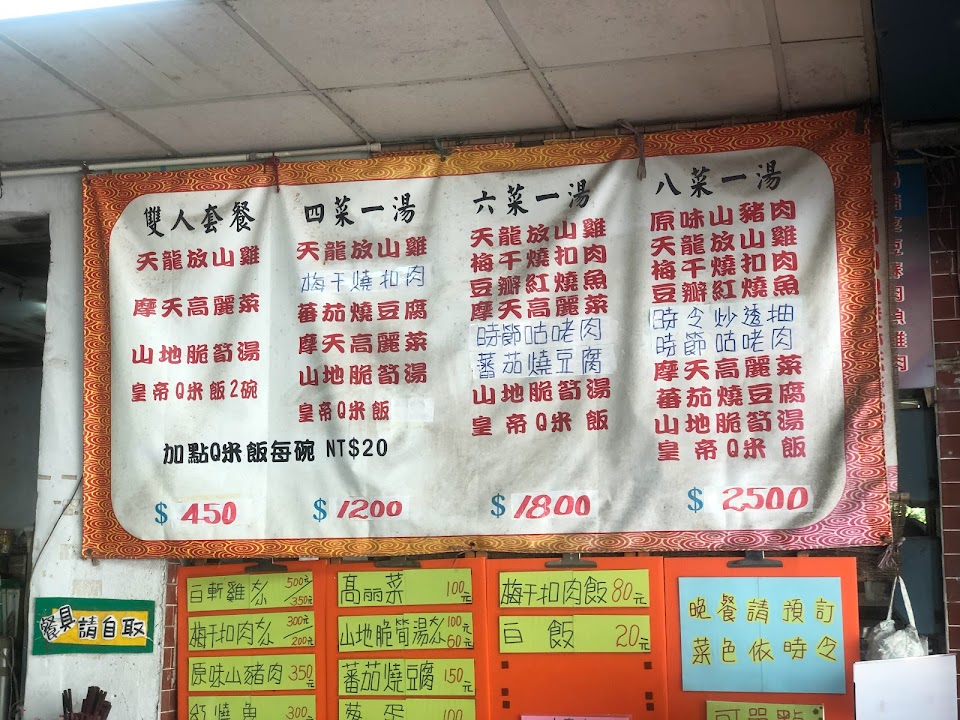 雙人套餐
天龍放山雞
摩天高麗菜
山地脆筍湯
皇帝Q米飯2碗
四菜一湯
天龍放山雞
梅干燒扣肉
蕃茄燒豆腐
摩天高麗菜
山地脆筍湯
皇帝Q米飯
加點Q米飯每碗 NT$20
六菜一湯
天龍放山雞
梅干燒扣肉
豆瓣紅燒魚
摩天高麗菜
時節咕咾肉
蕃茄燒豆腐
山地脆筍湯
皇帝Q米飯
八菜一湯
原味山豬肉
天龍放山雞
梅干燒扣肉
豆瓣紅燒魚
時令炒透抽
時節咕咾肉
摩天高麗菜
蕃茄燒豆腐
山地脆筍湯
皇帝Q米飯
$ 450
$ 1200
$ 1800
$ 2500
餐具請自取
白斬雞大/小 500元/350元
梅干扣肉大/小 300元/200元
原味山豬肉 350元
紅燒魚 300元
高丽菜 100元
山地脆筍湯大/小 100元/60元
蕃茄燒豆腐 150元
蔥蛋 100
梅干扣肉飯 80元
白飯 20元
晚餐請預訂
菜色依時令
可單點